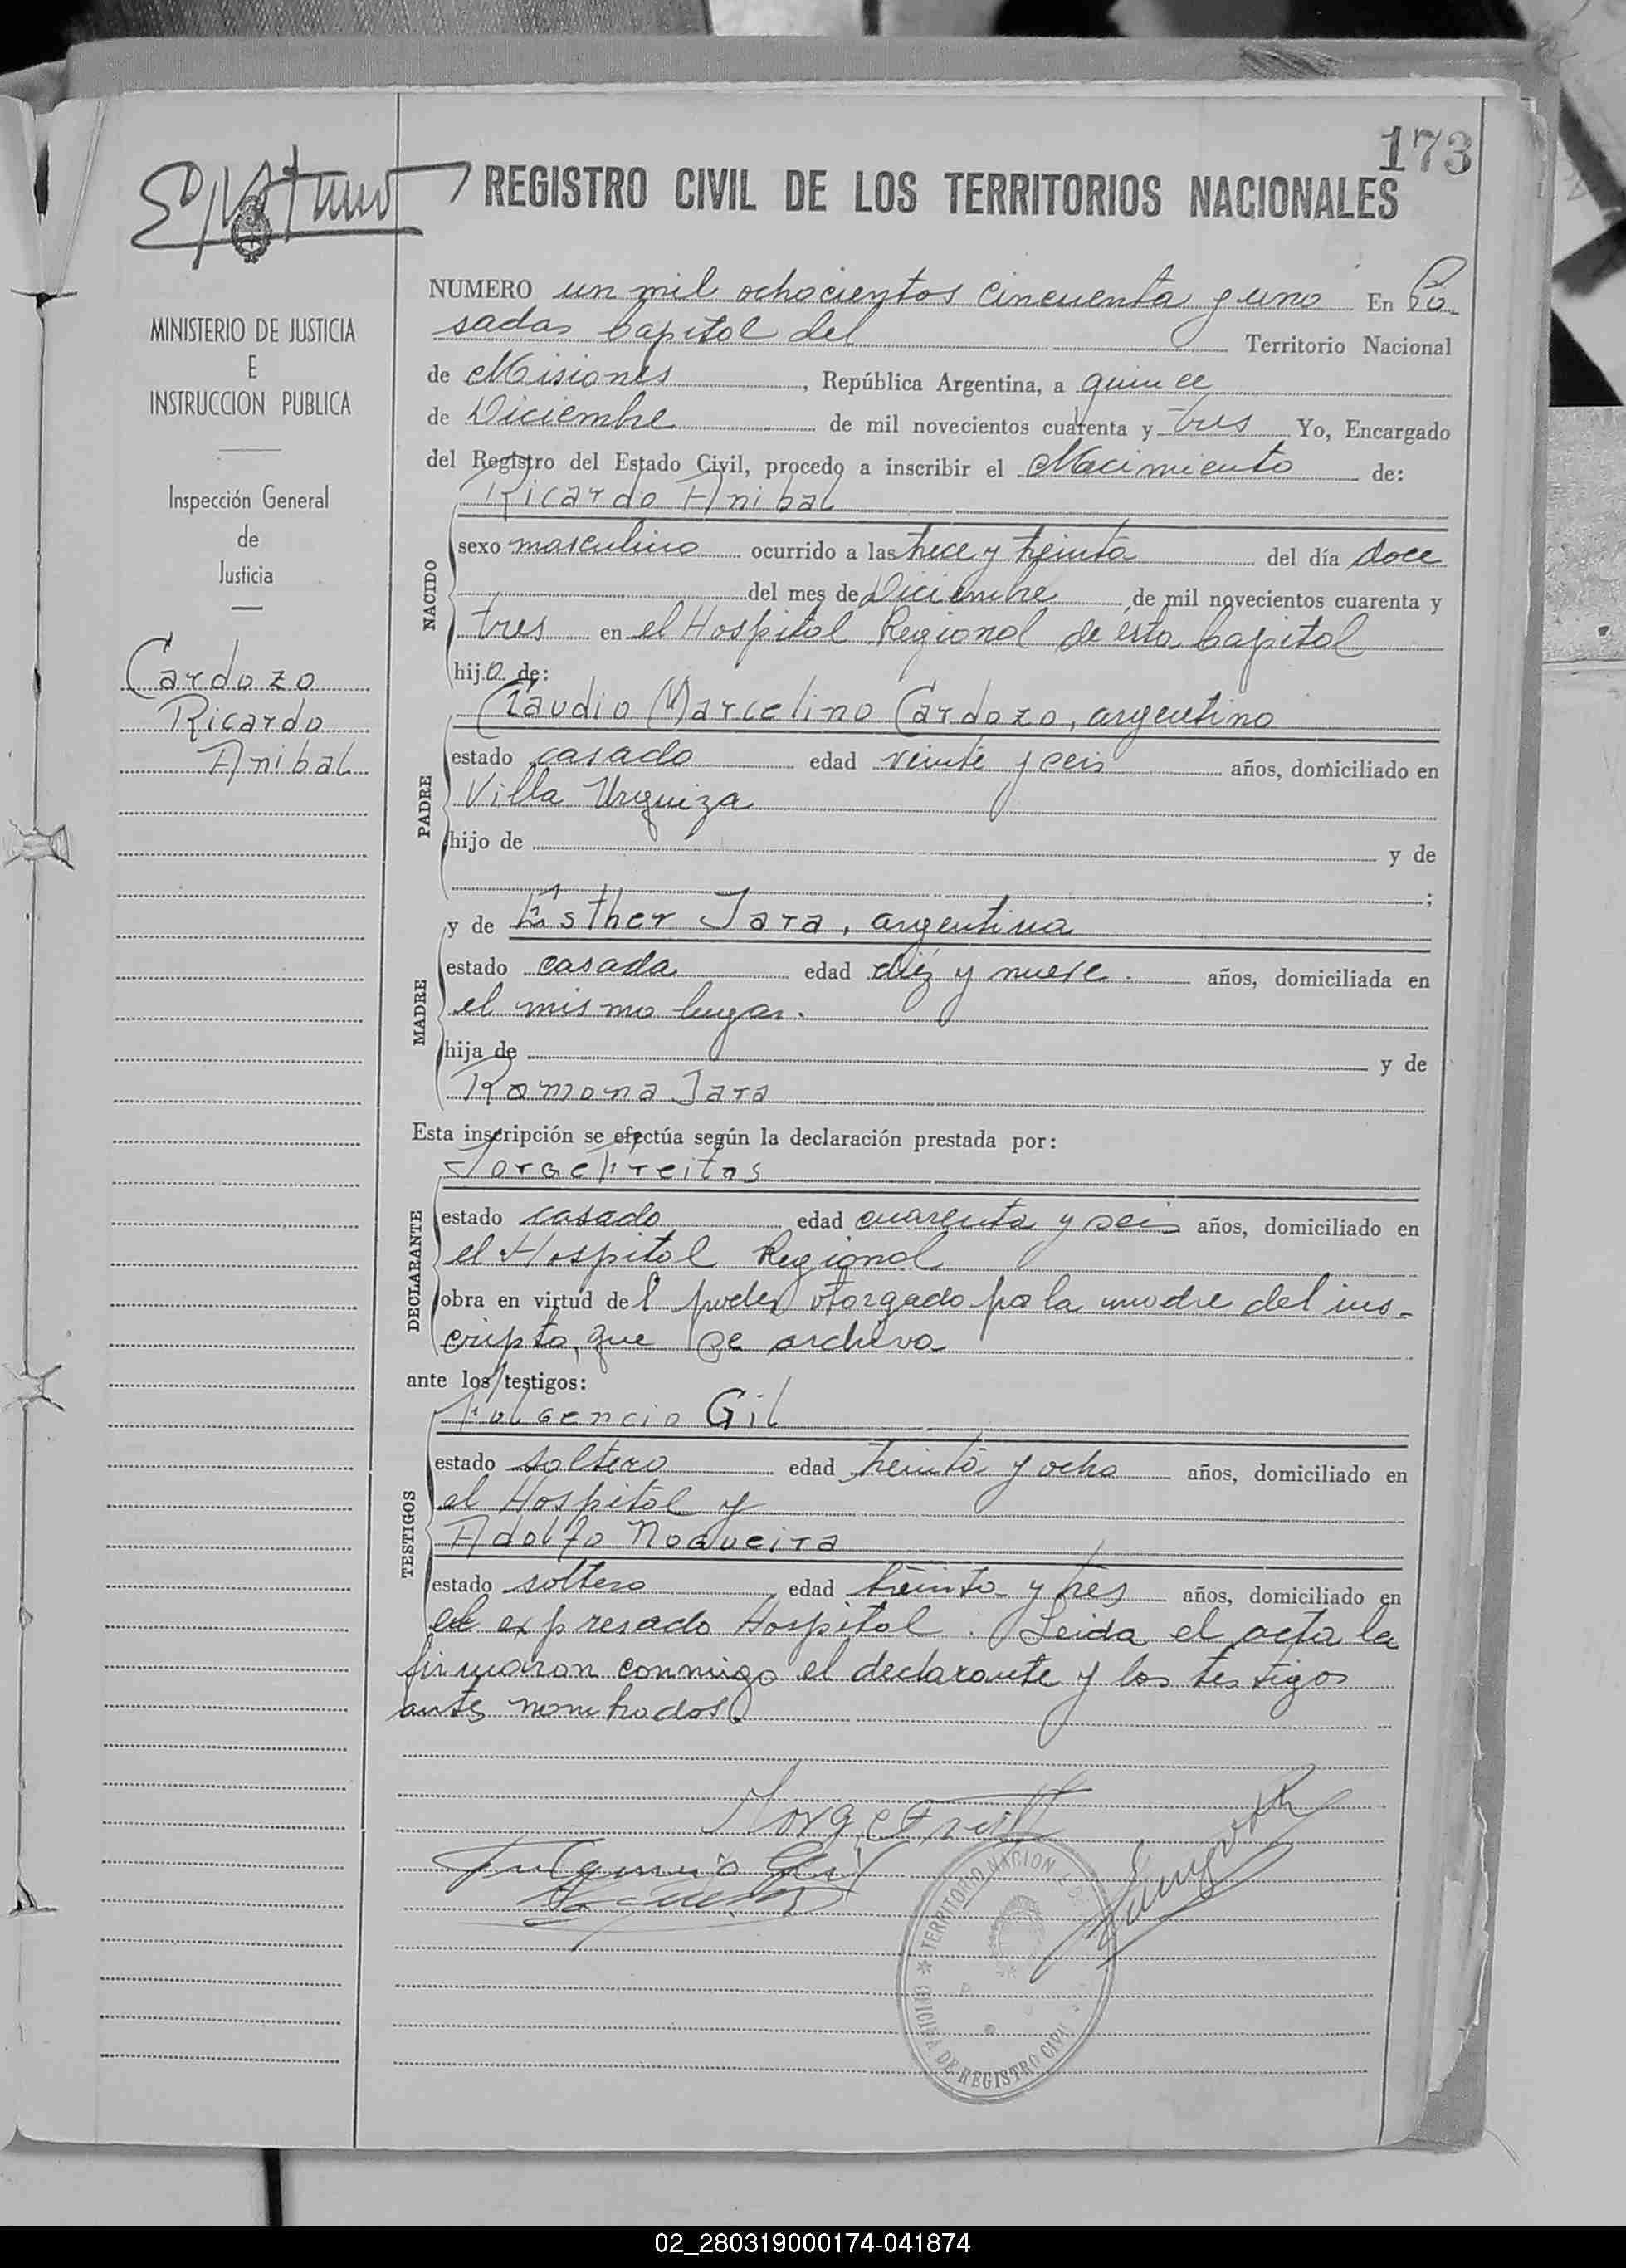 173
REGISTRO CIVIL DE LOS TERRITORIOS NACIONALES
MINISTERIO DE JUSTICIA
E
INSTRUCCION PUBLICA
Inspección General
de
Justicia
Cardozo
Ricardo
Anibal
NUMERO un mil ochocientos cincuenta y uno En Po-
sadas Capital del Territorio Nacional
de Misiones, República Argentina, a quince
de Diciembre de mil novecientos cuarenta y tres Yo, Encargado
del Registro del Estado Civil, procedo a inscribir el Nacimiento de:
Ricardo Anibal
NACIDO
sexo masculino ocurrido a las trece y treinta del día doce
del mes de Diciembre de mil novecientos cuarenta y
tres en el Hospital Regional de esta Capital
hijo de:
Claudio Marcelino Cardozo, argentino
PADRE
estado casado edad veinte y seis años, domiciliado en
Villa Urquiza
hijo de y de
;
y de Esther Jara, argentina
MADRE
estado casada edad diez y nueve. años, domiciliada en
el mismo lugar.
hija de y de
Ramona Jara
Esta inscripción se efectúa según la declaración prestada por:
Jorge Freitas
DECLARANTE
estado casado edad cuarenta y seis años, domiciliado en
el Hospital Regional
obra en virtud del poder otorgado por la madre del ins-
cripto, que se archiva
ante los testigos:
Fulgencio Gil
TESTIGOS
estado soltero edad treinta y ocho años, domiciliado en
el Hospital y
Adolfo Nogueira
estado soltero edad treinta y tres años, domiciliado en
el expresado Hospital. Leida el acta la
firmaron conmigo el declarante y los testigos
antes nombrados.
Fulgencio Gil
TERRITORIO NACIONAL
OFICINA DE REGISTRO CIVIL
02_280319000174-041874